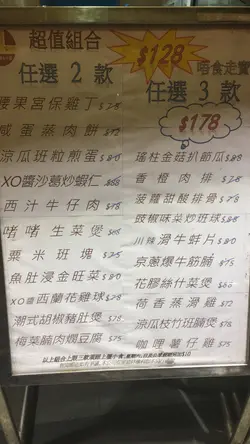 超值組合
$128
啱食走寶
任選 2 款
任選 3 款
$178
腰果宮保雞丁 $78
咸蛋蒸肉餅 $72
涼瓜班粒煎蛋 $80
XO醬沙葛炒蝦仁 $88
西汁牛仔肉 $78
啫啫生菜煲 $68
粟米班塊 $75
魚肚浸金旺菜 $80
XO醬西蘭花雞球 $78
潮式胡椒豬肚煲 $78
梅菜腩肉燜豆腐 $75
瑤柱金菇扒節瓜 $88
香橙肉排 $78
菠蘿甜酸排骨 $78
豉椒味菜炒班球 $85
川辣滑牛蚌片 $80
京蔥爆牛筋腩 $75
花膠絲什菜煲 $86
荷香蒸滑雞 $72
涼瓜枝竹班腩煲 $78
咖喱薯仔雞 $75